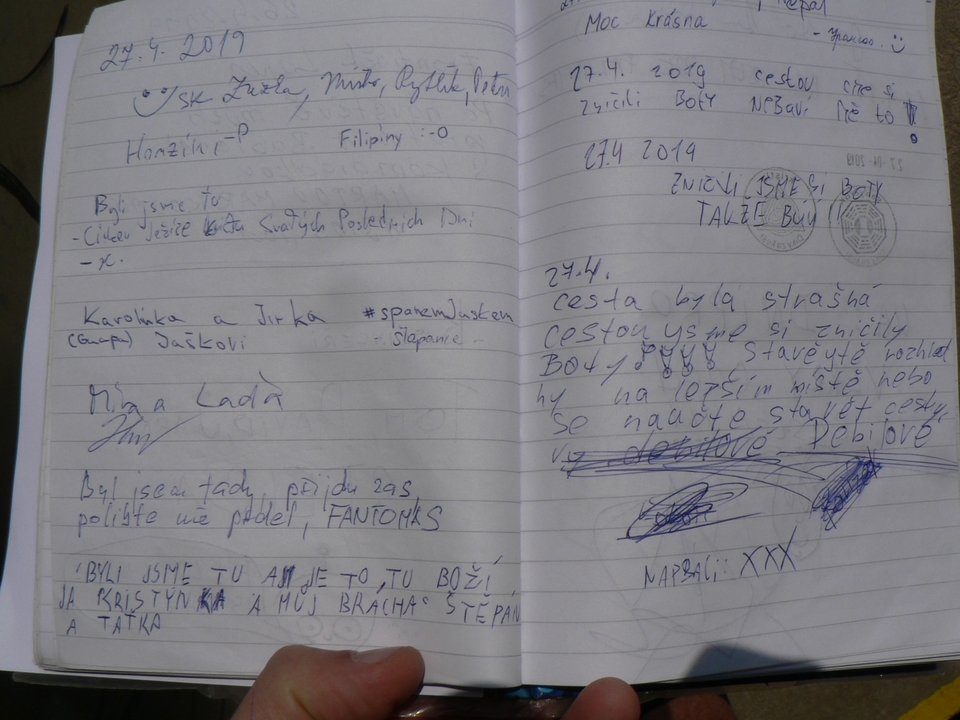 27.4. 2019
SK Zuzla, Misto, Rytlík, Petr
Honzíki :-P Filipíny :-O
Byli jsme tu
- Církev Ježíše Krista Svatých Posledních Dní
- x.
Karolínka a Jirka #spanemJaskem
Jaškovi - šlapanie -
Míra a Laďa
Byl jsem tady, přijdu zas,
polibte mě prdel, FANTOMAS
BYLI JSME TU A JE TO TU BOŽÍ
JA KRISTYNKA A MŮJ BRÁCHA ŠTĚPÁN
A TAŤKA
Nepál
Moc krásna
27.4. 2019 cestou sme si
zničili BOTY NEBAVÍ MĚ TO !
27.4 2019
ZNIČILI JSME SI BOTY
TAKŽE BÚÚ
27.4.
cesta byla strašná
cestou ysme si zničily
BOTy !!!! Stavěytě rozhled
ny na lepším místě nebo
se naučte stavět cesty
vy debilové Debilové
NAPSALI: XXX